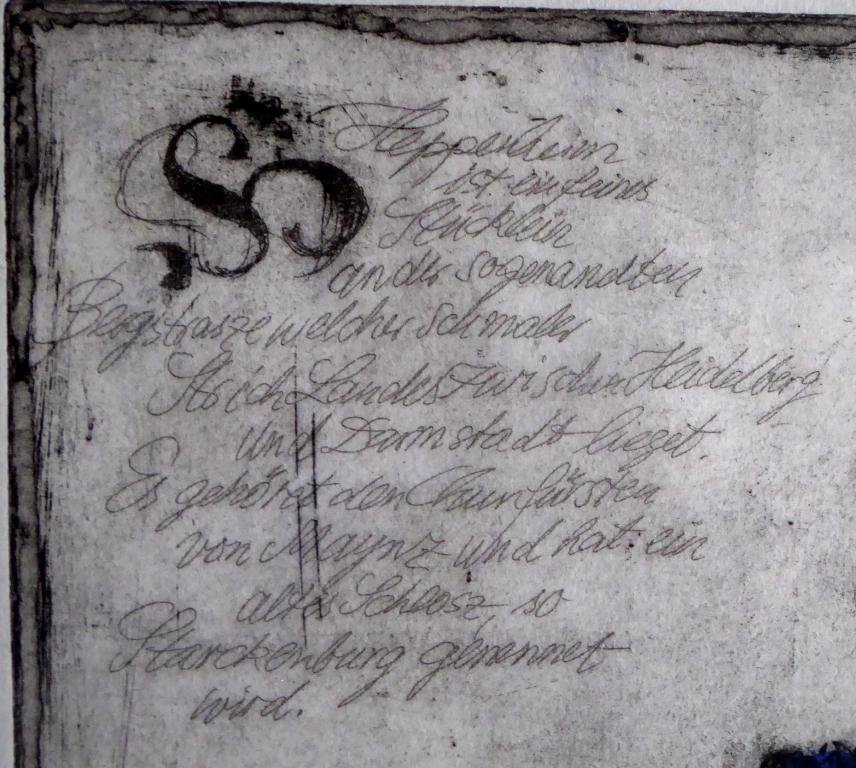 Heppenheim
ist ein feines
Stücklein
an der sogenandten
Bergstrasze welcher schmaler
Strich Landes zwischen Heidelberg
und Darmstadt lieget.
Es gehöret den Churfürsten
von Maynz und hat ein
altes Schlosz, so
Starckenburg genennet
wird.